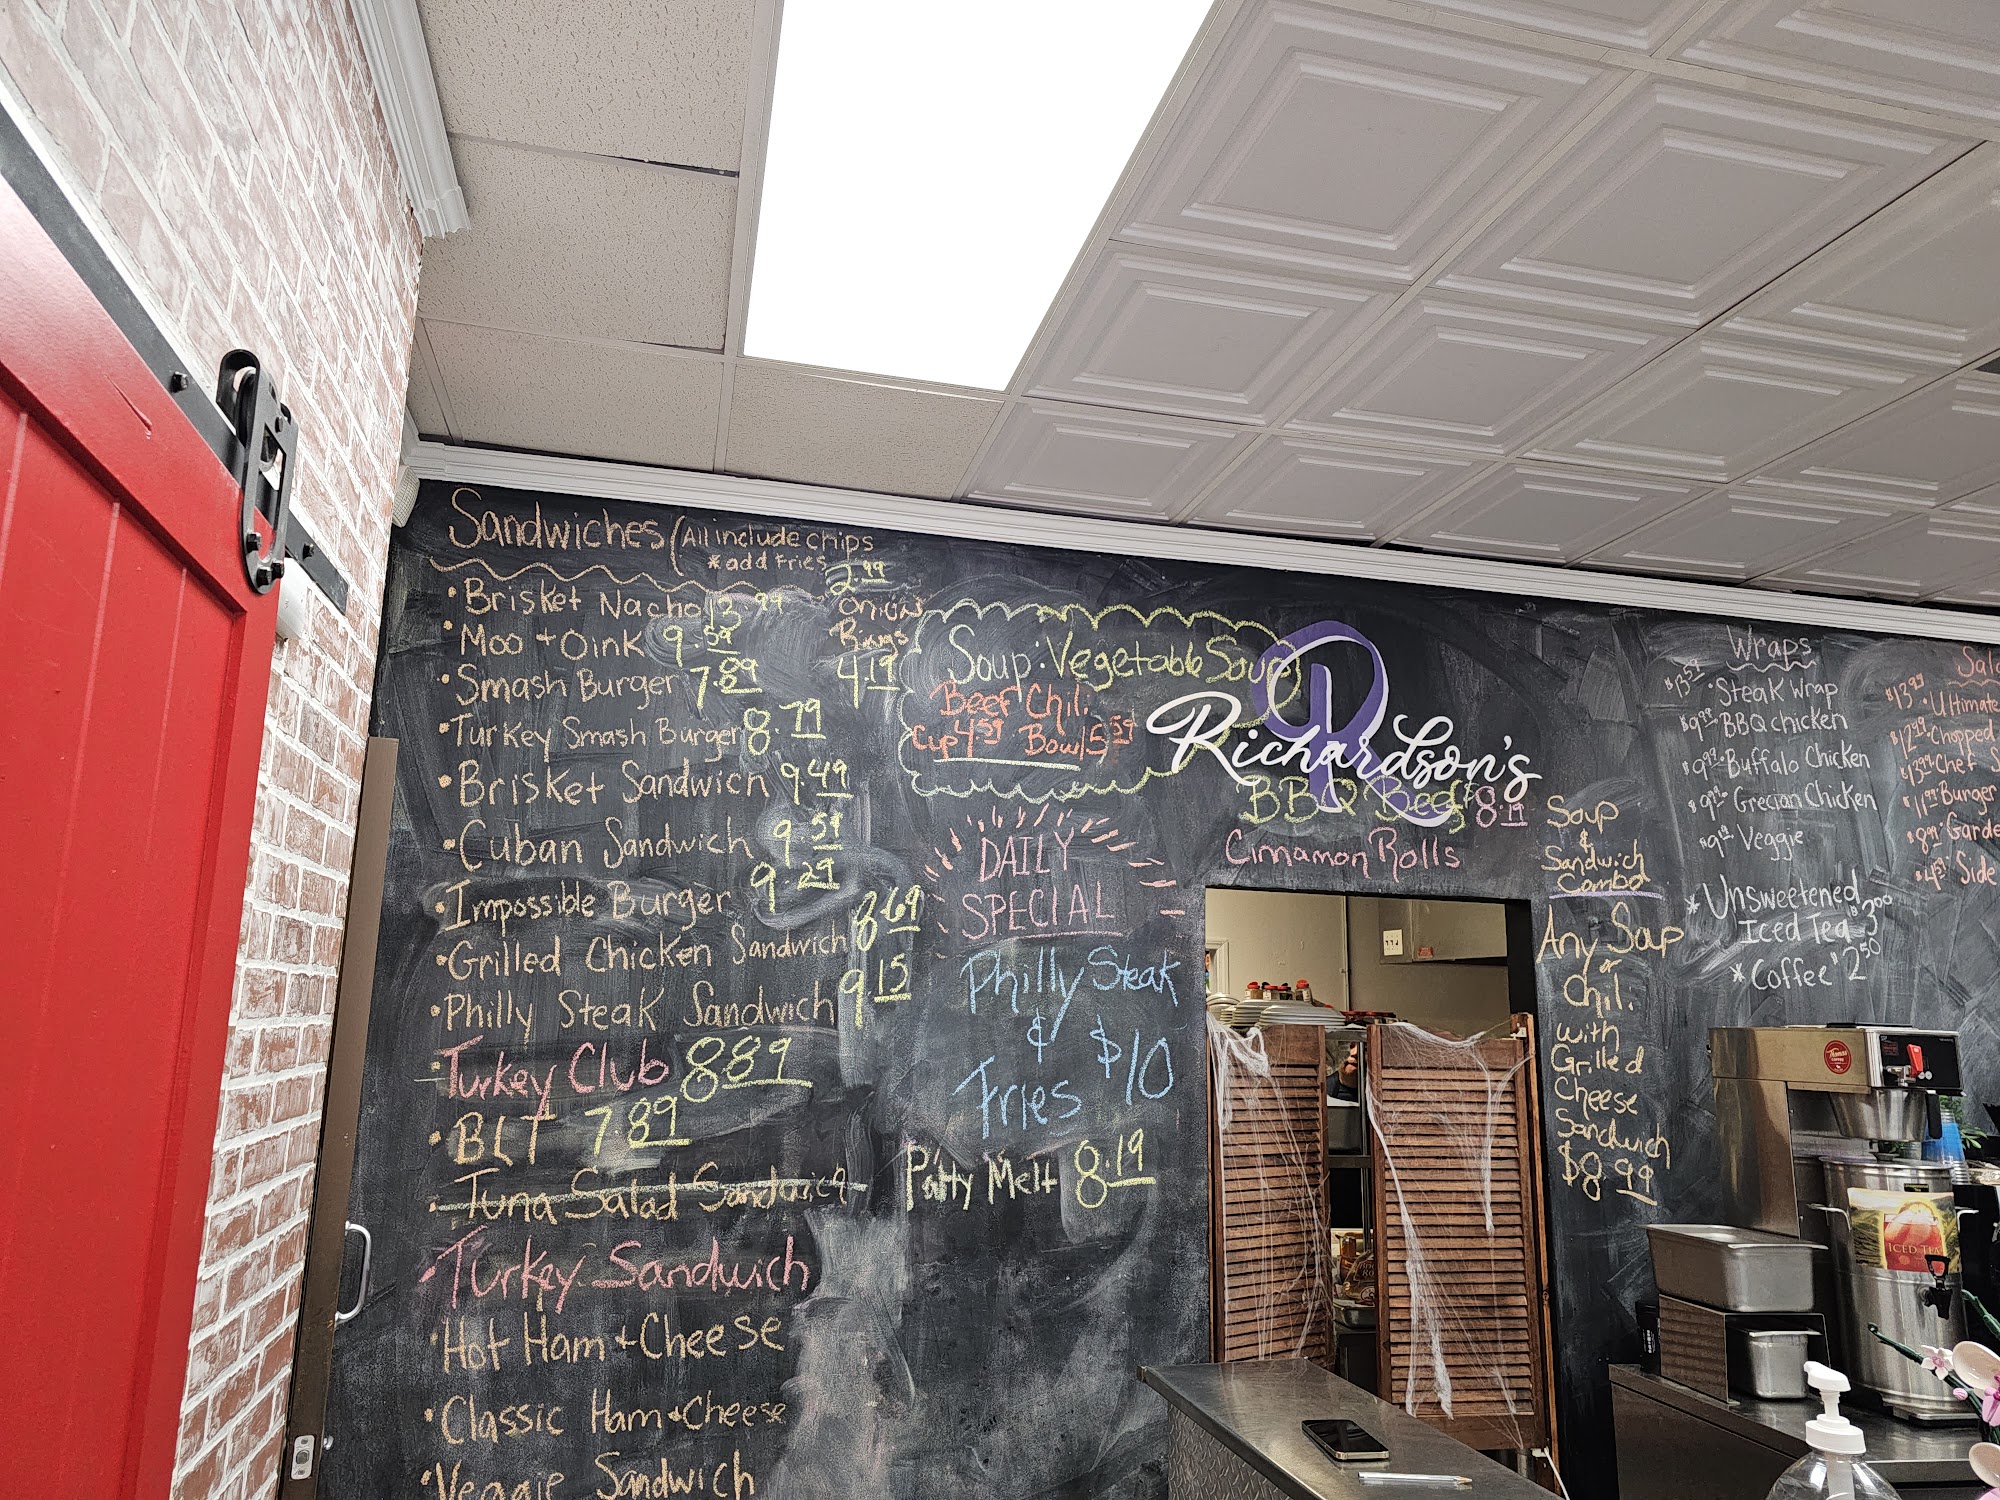 Sandwiches (All include chips
*add Fries 2.99
Onion Rings 4.19
• Brisket Nacho 13.99
• Moo + Oink 9.59
• Smash Burger 7.89
• Turkey Smash Burger 8.79
• Brisket Sandwich 9.49
• Cuban Sandwich 9.59
• Impossible Burger 9.29
• Grilled Chicken Sandwich 8.69
• Philly Steak Sandwich 9.15
Turkey Club 8.89
• BLT 7.89
• Tuna Salad Sandwich
• Turkey Sandwich
• Hot Ham + Cheese
• Classic Ham + Cheese
• Veggie Sandwich
Soup: Vegetable Soup
Beef Chili
Cup 4.59 Bowl 5.59
DAILY
SPECIAL
Philly Steak
&
Fries $10
Patty Melt 8.19
R
Richardson's
BBQ Beef 8.19
Cinnamon Rolls
Soup
&
Sandwich
Combo
Any Soup
or
Chili
with
Grilled
Cheese
Sandwich
$8.99
Wraps
$13.59 • Steak Wrap
$9.99 • BBQ chicken
$9.99 • Buffalo Chicken
$9.99 Grecian Chicken
Veggie
* Unsweetened
Iced Tea $3.00
* Coffee $2.50
$13.99 • Ultimate
$12.99 • Chopped
Chef
• Burger
$8.99
• Side
ICED TEA